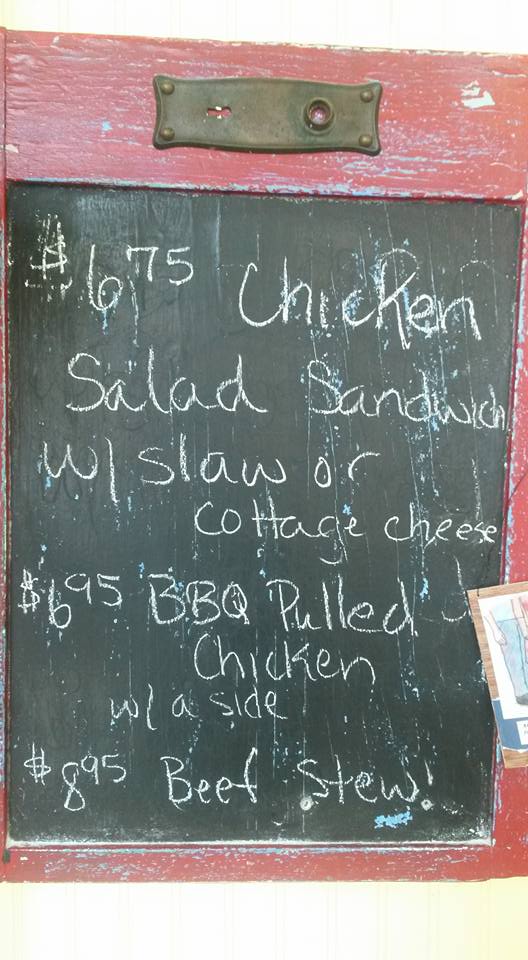 $6 75 Chicken
Salad Sandwich
w/ slaw or
cottage cheese
$6 95 BBQ Pulled
Chicken
w/ a side
$8 95 Beef Stew!